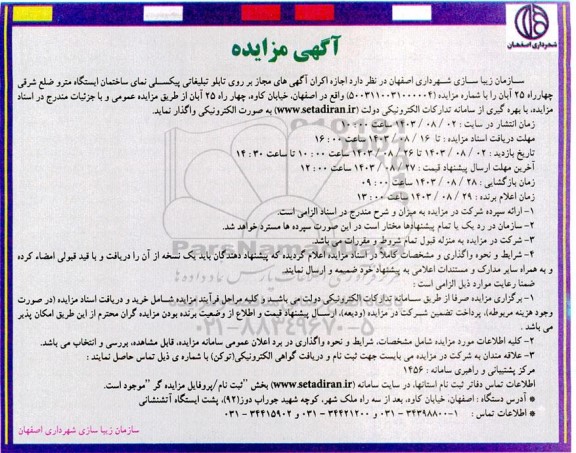 شهرداری اصفهان
آگهی مزایده
سـازمان زیبا سـازی شـهرداری اصفهان در نظر دارد اجازه اکران آگهی های مجاز بر روی تابلو تبلیغاتی پیکسـلی نمای ساختمان ایستگاه مترو ضلع شرقی
چهارراه ۲۵ آبان را با شماره مزایده (۵۰۰۳۱۱۰۰۳۱۰۰۰۰۰۴) واقع در اصفهان، خیابان کاوه، چهار راه ۲۵ آبان از طریق مزایده عمومی و با جزئیات مندرج در اسناد
مزایده، با بهره گیری از سامانه تدارکات الکترونیکی دولت (www.setadiran.ir) به صورت الکترونیکی واگذار نماید.
زمان انتشار در سایت : ۰۲ / ۰۸ / ۱۴۰۳ ساعت ۱۰:۰۰
مهلت دریافت اسناد مزایده : تا ۱۶ / ۰۸ / ۱۴۰۳ ساعت ۱۶:۰۰
تاریخ بازدید : ۰۲ / ۰۸ / ۱۴۰۳ تا ۲۶ / ۰۸ / ۱۴۰۳ ساعت ۱۰:۰۰ تا ساعت ۱۴:۳۰
آخرین مهلت ارسال پیشنهاد قیمت : ۲۷ / ۰۸ / ۱۴۰۳ ساعت ۱۲:۰۰
زمان بازگشایی : ۲۸ / ۰۸ / ۱۴۰۳ ساعت ۰۹:۰۰
زمان اعلام برنده : ۲۹ / ۰۸ / ۱۴۰۳ ساعت ۱۳:۰۰
۱- ارائه سپرده شرکت در مزایده به میزان و شرح مندرج در اسناد الزامی است.
۲- سازمان در رد یک یا تمام پیشنهادها مختار است در این صورت سپرده ها مسترد خواهد شد.
۳- شرکت در مزایده به منزله قبول تمام شروط و مقررات می باشد.
۴- شرایط و نحوه واگذاری و مشخصات کاملاً در اسناد مزایده اعلام گردیده که پیشنهاد دهندگان باید یک نسخه از آن را دریافت و با قید قبولی امضاء کرده
و به همراه سایر مدارک و مستندات اعلامی به پیشنهاد خود ضمیمه و ارسال نمایند.
ضمنا رعایت موارد ذیل الزامی است :
۱- برگزاری مزایده صرفا از طریق سـامانه تدارکات الکترونیکی دولت می باشـد و کلیه مراحل فرآیند مزایده شـامل خرید و دریافت اسناد مزایده (در صورت
وجود هزینه مربوطه)، پرداخت تضمین شـرکت در مزایده (ودیعه)، ارسـال پیشنهاد قیمت و اطلاع از وضعیت برنده بودن مزایده گران محترم از این طریق امکان پذیر
می باشد .
۲- کلیه اطلاعات مورد مزایده شامل مشخصات، شرایط و نحوه واگذاری در برد اعلان عمومی سامانه مزایده، قابل مشاهده، بررسی و انتخاب می باشد.
۳- علاقه مندان به شرکت در مزایده می بایست جهت ثبت نام و دریافت گواهی الکترونیکی(توکن) با شماره ی ذیل تماس حاصل نمایند :
مرکز پشتیبانی و راهبری سامانه : ۱۴۵۶
اطلاعات تماس دفاتر ثبت نام استانها، در سایت سامانه (www.setadiran.ir) بخش "ثبت نام/پروفایل مزایده گر "موجود است.
* آدرس دستگاه : اصفهان، خیابان کاوه، بعد از سه راه ملک شهر، کوچه شهید جوراب دوز(۹۲)، پشت ایستگاه آتشنشانی
* اطلاعات تماس : ۱-۳۴۳۹۸۸۰۰ - ۰۳۱ و ۳۴۴۲۱۲۰۰ - ۰۳۱ و ۳۴۴۱۵۹۰۲ - ۰۳۱
سازمان زیبا سازی شهرداری اصفهان
ParsNamadData
۰۲۱-۸۸۳۴۹۶۷۰-۵